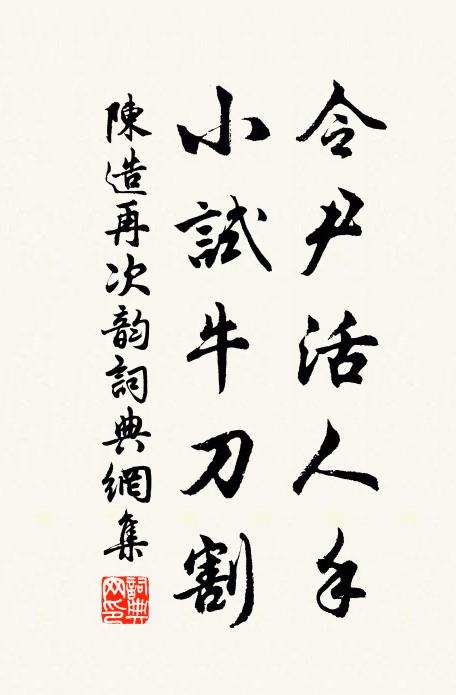 令尹活人手
小試牛刀割
陳造再次韵詞典網集
詞典網印